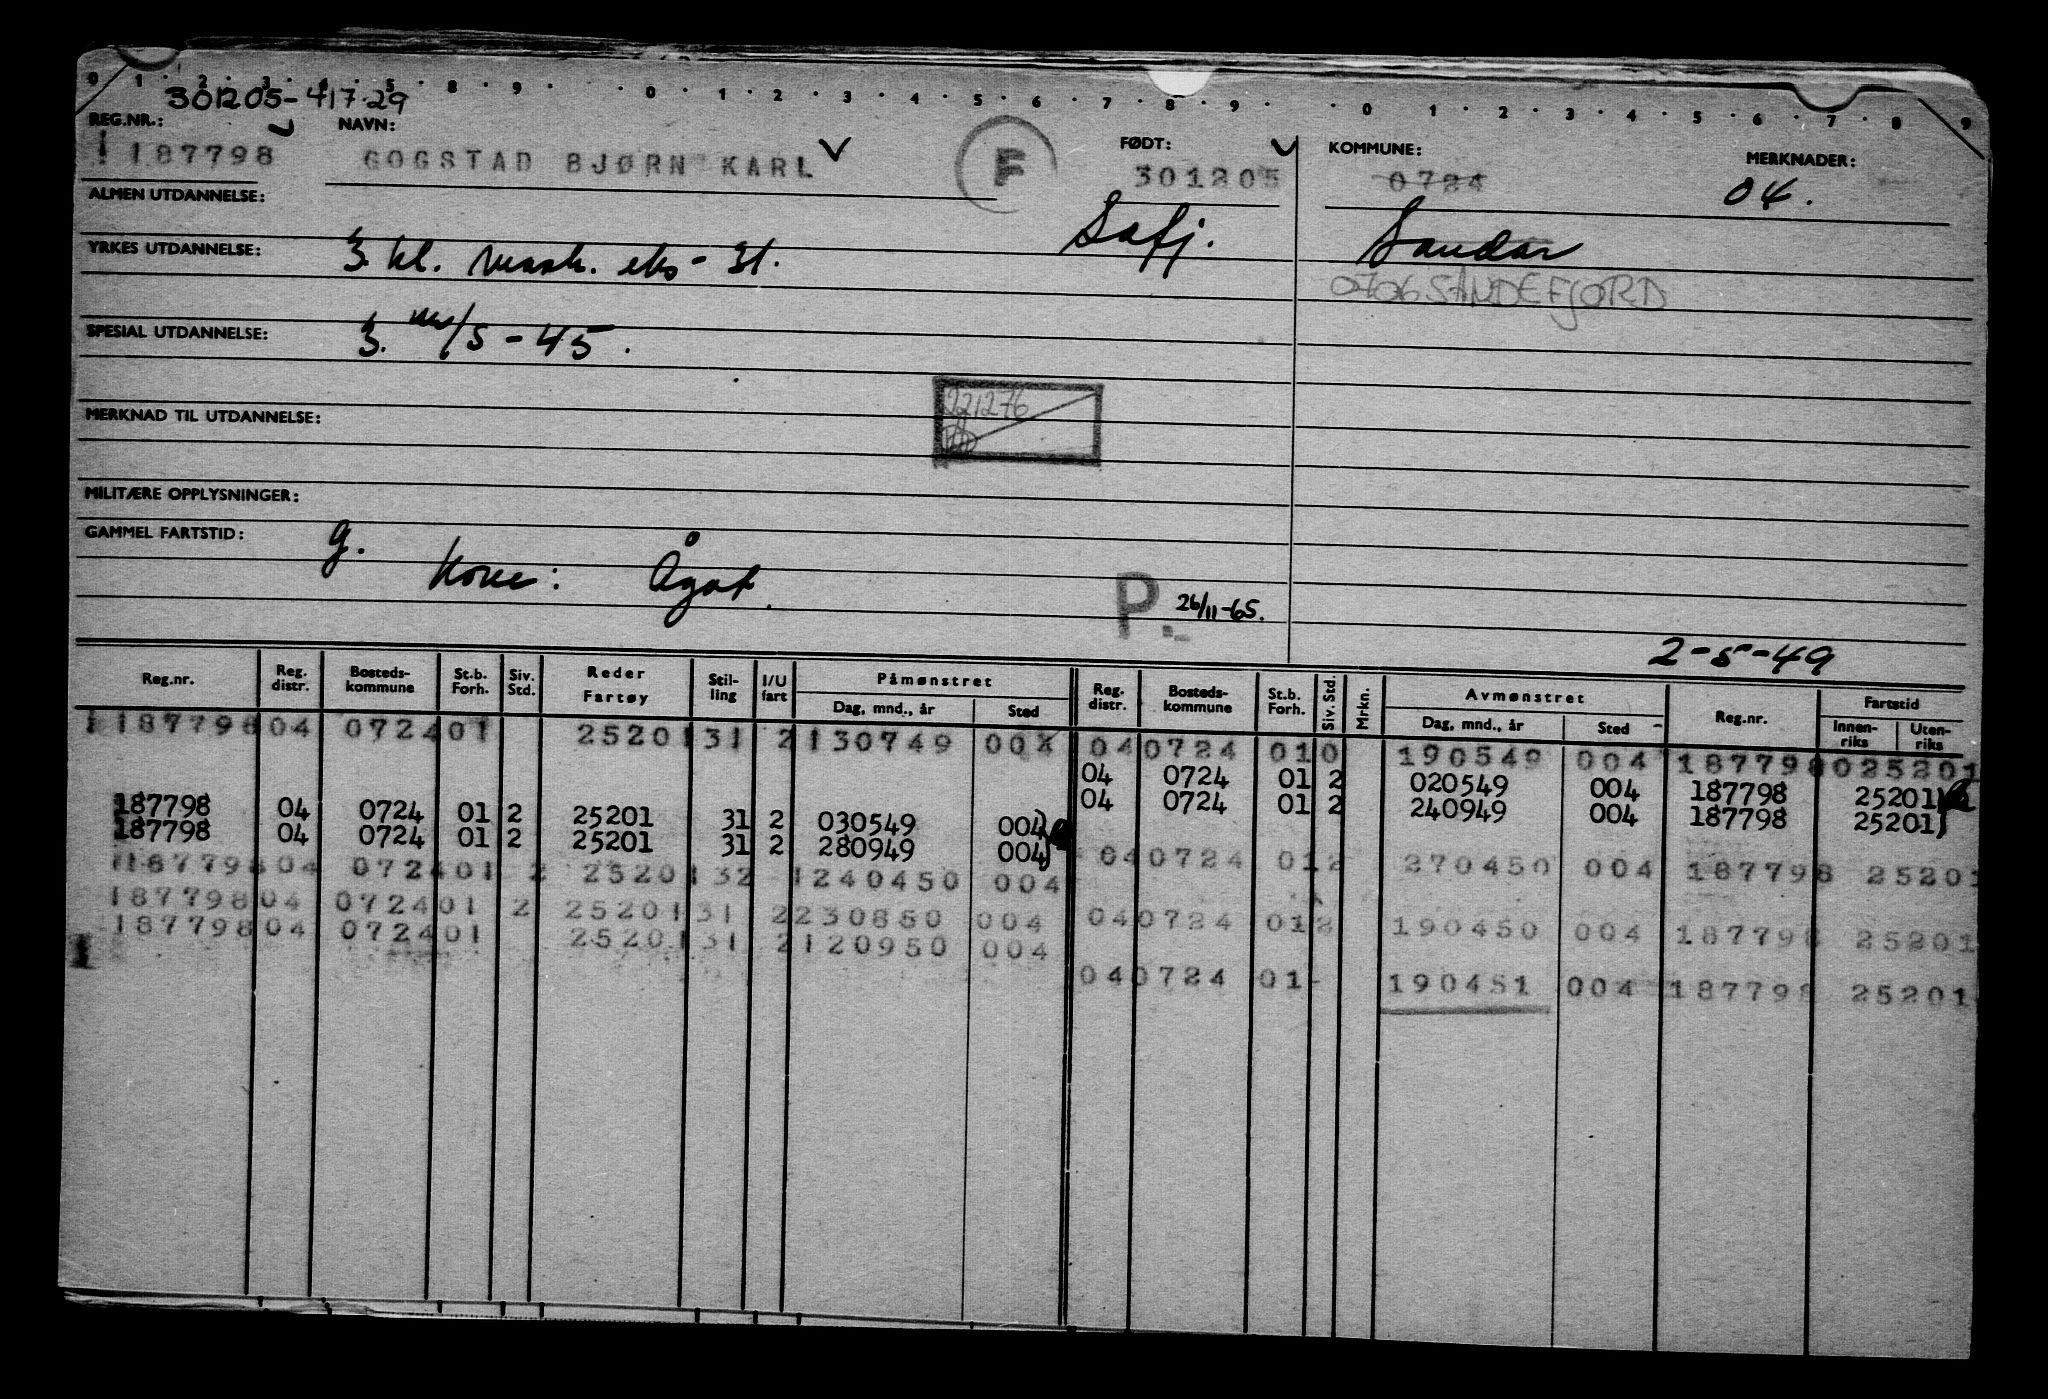 0 · 1 · 2 · 3 · 4 · 5 · 8 · 9 · · 0 · 1 · 2 · 3 · 4 · 5 · 6 · 7 · 8 · 9 · · 0 · 1 · 2 · 3 · 4 · 5 · 6 · 7 · 8 9
301205-417.29
REG.NR.: NAVN: FØDT: KOMMUNE: MERKNADER:
187798 GOGSTAD BJØRN KARL F 301205 0724 04.
ALMEN UTDANNELSE: Safj. Sandar
YRKES UTDANNELSE: 3. kl. mask. eks - 31.
0706 SANDEFJORD
SPESIAL UTDANNELSE: 3. /5 - 45.
221276
MERKNAD TIL UTDANNELSE:
MILITÆRE OPPLYSNINGER:
GAMMEL FARTSTID: g.
Kone: Ågot.
P. 26/11-65.
2-5-49
Reg.nr. Reg. distr. Bosteds-kommune St.b. Forh. Siv. Std. Reder Fartøy Stil-ling I/U fart Påmønstret Dag, mnd., år Sted Reg. distr. Bosteds-kommune St.b. Forh. Siv. Std. Mrkn. Avmønstret Dag, mnd., år Sted Reg.nr. Fartstid Innen-riks Uten-riks
1 187798 04 0724 01 25201 31 2 130749 004 04 0724 01 0 190549 004 187798 025201
04 0724 01 2 020549 004 187798 25201)
187798 04 0724 01 2 25201 31 2 030549 004) 04 0724 01 2 240949 004 187798 25201)
187798 04 0724 01 2 25201 31 2 280949 004)
187798 04 0724 01 2 25201 32 1 240450 004 04 0724 01 2 270450 004 187798 25201
187798 04 0724 01 2 25201 31 2 230850 004 04 0724 01 2 190450 004 187798 25201
187798 04 0724 01 25201 31 2 120950 004
04 0724 01 - 190451 004 187798 25201